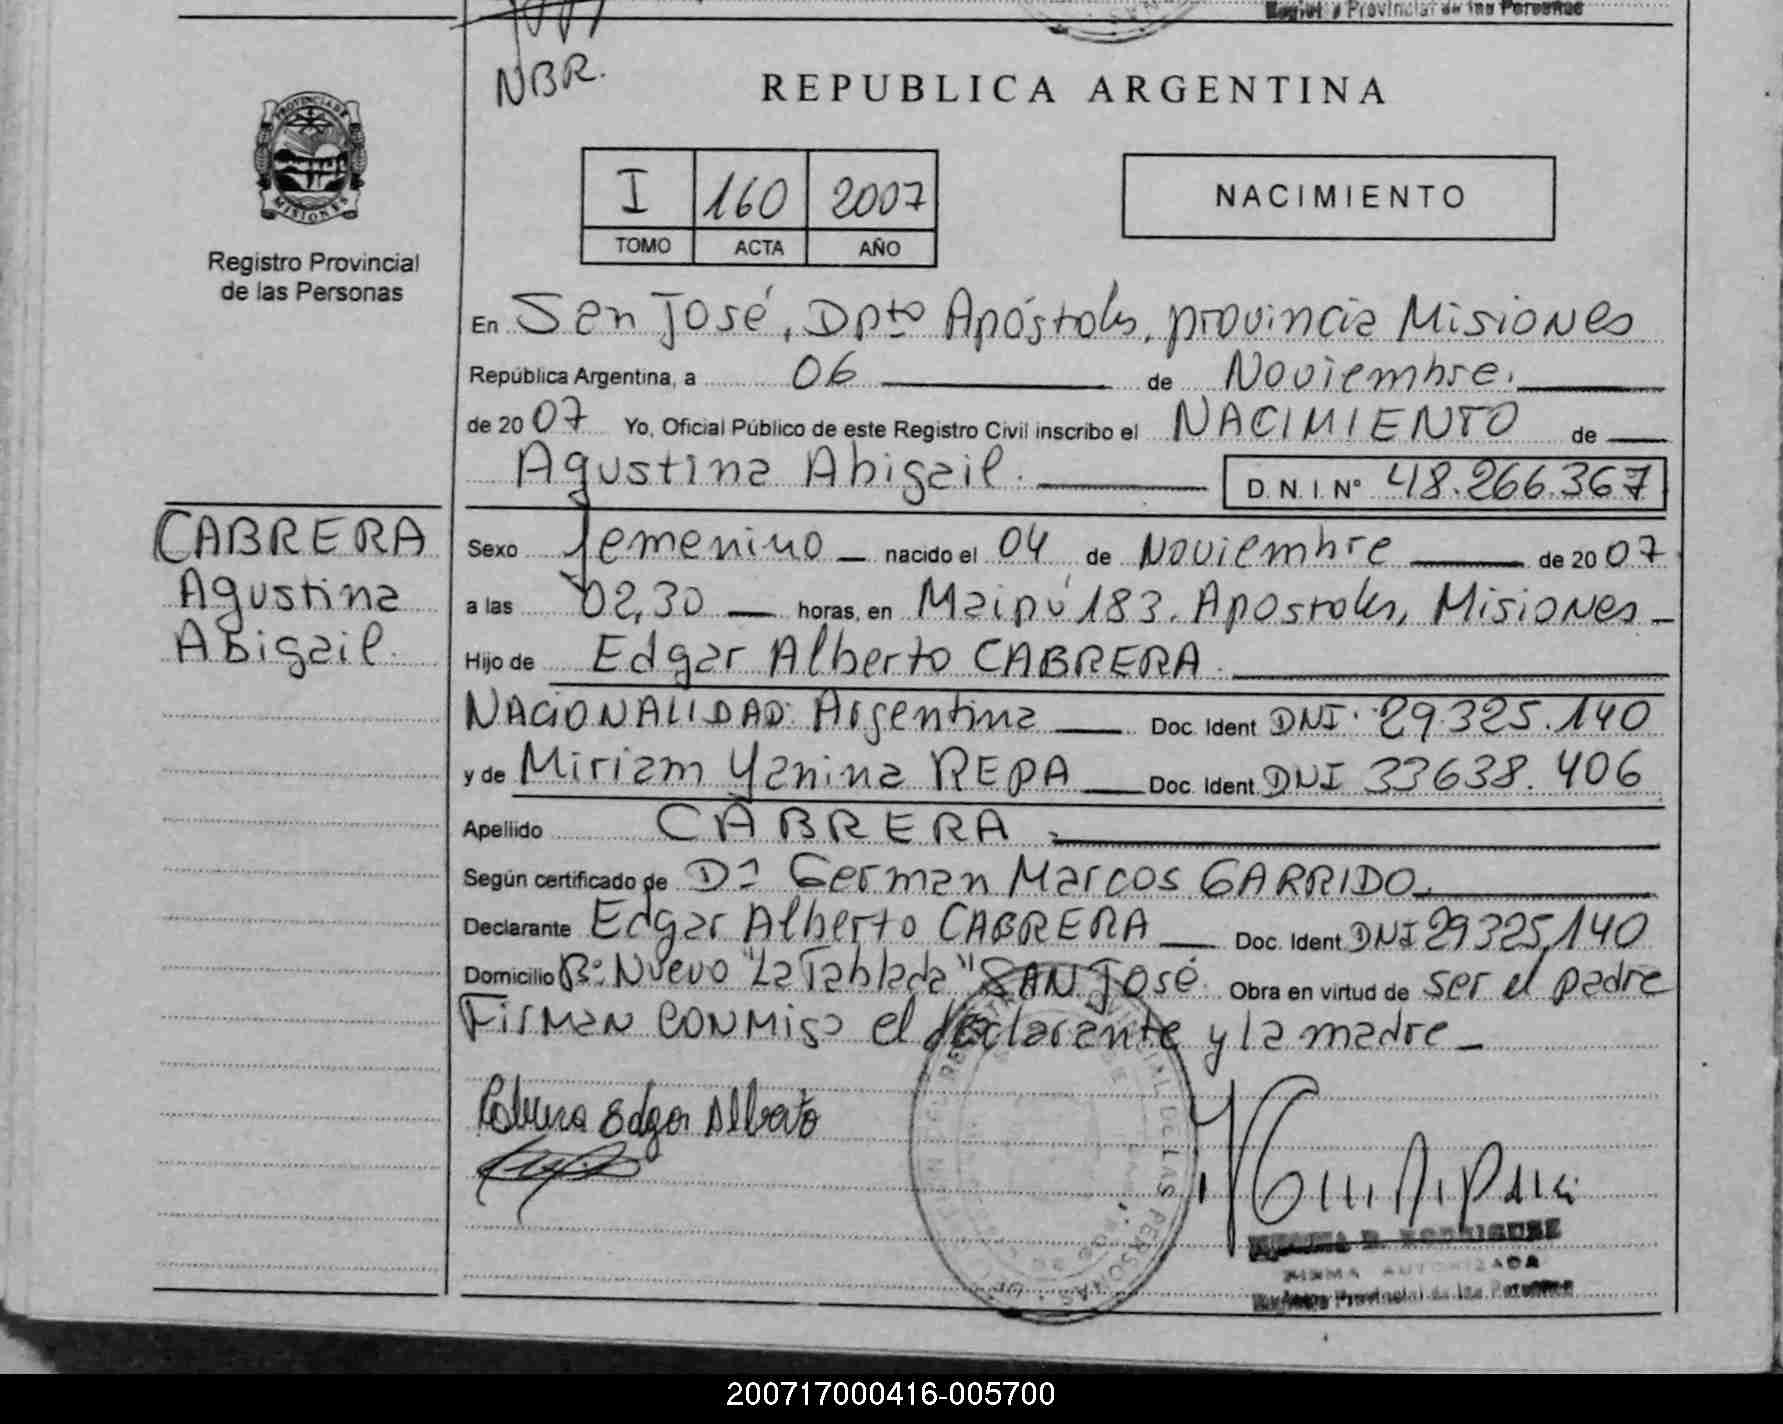 Provincial de las Personas
NBR.
REPUBLICA ARGENTINA
PROVINCIA DE
MISIONES
I 160 2007
TOMO ACTA AÑO
NACIMIENTO
Registro Provincial
de las Personas
En San José, Dpto Apóstoles, provincia Misiones
República Argentina, a 06 de Noviembre.
de 2007 Yo, Oficial Público de este Registro Civil inscribo el NACIMIENTO de
Agustina Abigail. D.N.I. N° 48.266.367
CABRERA
Agustina
Abigail.
Sexo femenino nacido el 04 de Noviembre de 2007
a las 02,30 horas, en Maipú 183. Apostoles, Misiones
Hijo de Edgar Alberto CABRERA.
NACIONALIDAD: Argentina Doc. Ident DNI. 29.325.140
y de Miriam Yanina REPA Doc. Ident. DNI 33638.406
Apellido CABRERA
Según certificado de Dr German Marcos GARRIDO
Declarante Edgar Alberto CABRERA Doc. Ident DNI 29325,140
Domicilio B°: Nuevo "La Tablada" SAN José. Obra en virtud de ser el padre
Firman conmigo el declarante y la madre
Cabrera Edgar Alberto
RODRIGUEZ
FIRMA AUTORIZADA
Provincial de las Personas
200717000416-005700